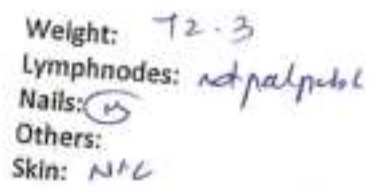 Weight: 72.3
Lymphnodes: not palpable
Nails: N
Others:
Skin: NAC